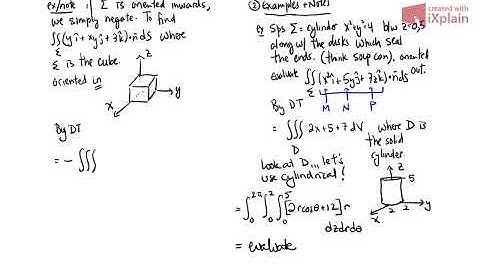 ex/note if Σ is oriented inwards,
we simply negate. To find
∬(yî+xyĵ+3k̂)·n̂ds where
Σ
Σ is the cube.
oriented in
z
y
x
By DT
= -∭
② Examples + Notes
ex Sps Σ = cylinder x²+y²=4 b/w z=0,5
along w/ the disks which seal
the ends. (think soup can), oriented
out.
evaluate ∬(x²î+5yĵ+7zk̂)·n̂ds
Σ
M N P
By DT
= ∭ 2x+5+7 dV where D is
D
the solid
cylinder.
Look at D... let's
use cylindrical!
z
5
2 2 y
x
= ∫₀^2π ∫₀^2 ∫₀^5 [2rcosθ+12] r
dzdrdθ
= evaluate
created with
iXplain